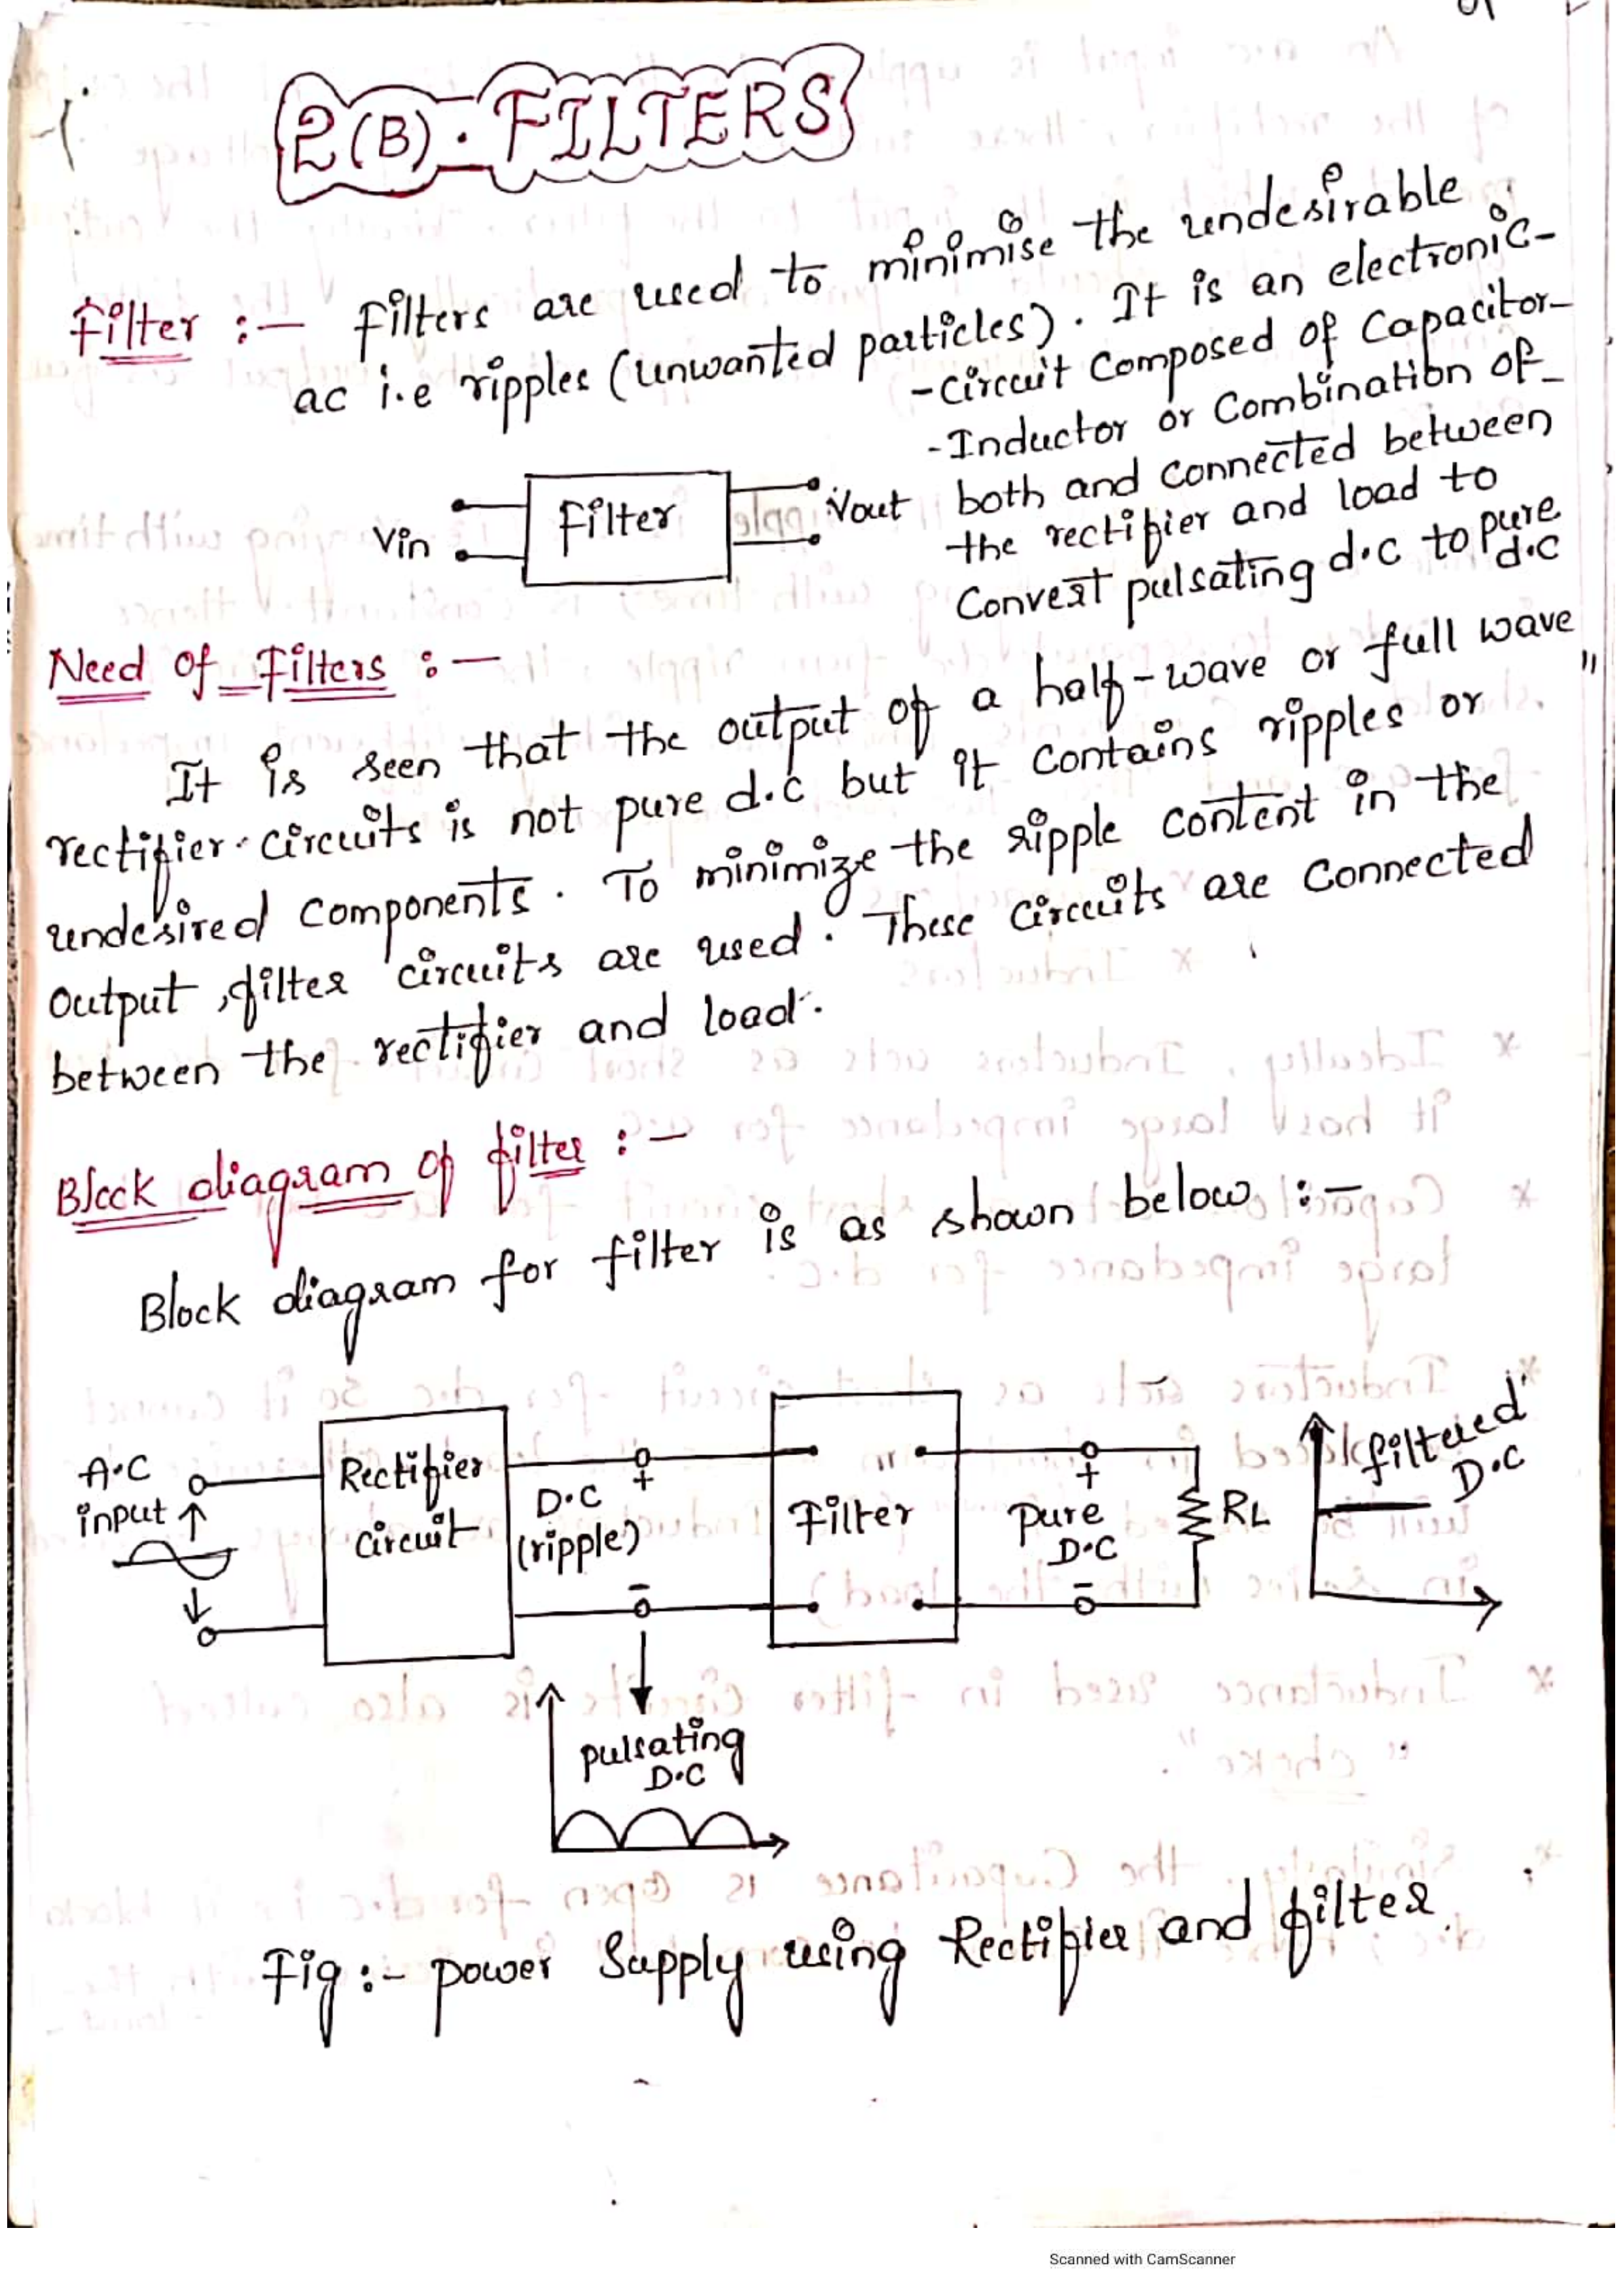 2(B). FILTERS
Filter :- Filters are used to minimise the undesirable
ac i.e ripples (unwanted particles). It is an electronic-
-circuit composed of capacitor-
-Inductor or combination of-
both and connected between
the rectifier and load to
Convert pulsating d.c to pure
d.c
Vin
Filter
Vout
Need of Filters :-
It is seen that the output of a half-wave or full wave
rectifier circuits is not pure d.c but it contains ripples or
undesired components. To minimize the ripple content in the
output, filter circuits are used. These circuits are connected
between the rectifier and load.
Block diagram of filter :-
Block diagram for filter is as shown below :-
A.C
input
Rectifier
circuit
D.C
(ripple)
+
-
Filter
+
Pure
D.C
-
RL
filtered
D.C
pulsating
D.C
Fig :- power Supply using Rectifier and filter
Scanned with CamScanner